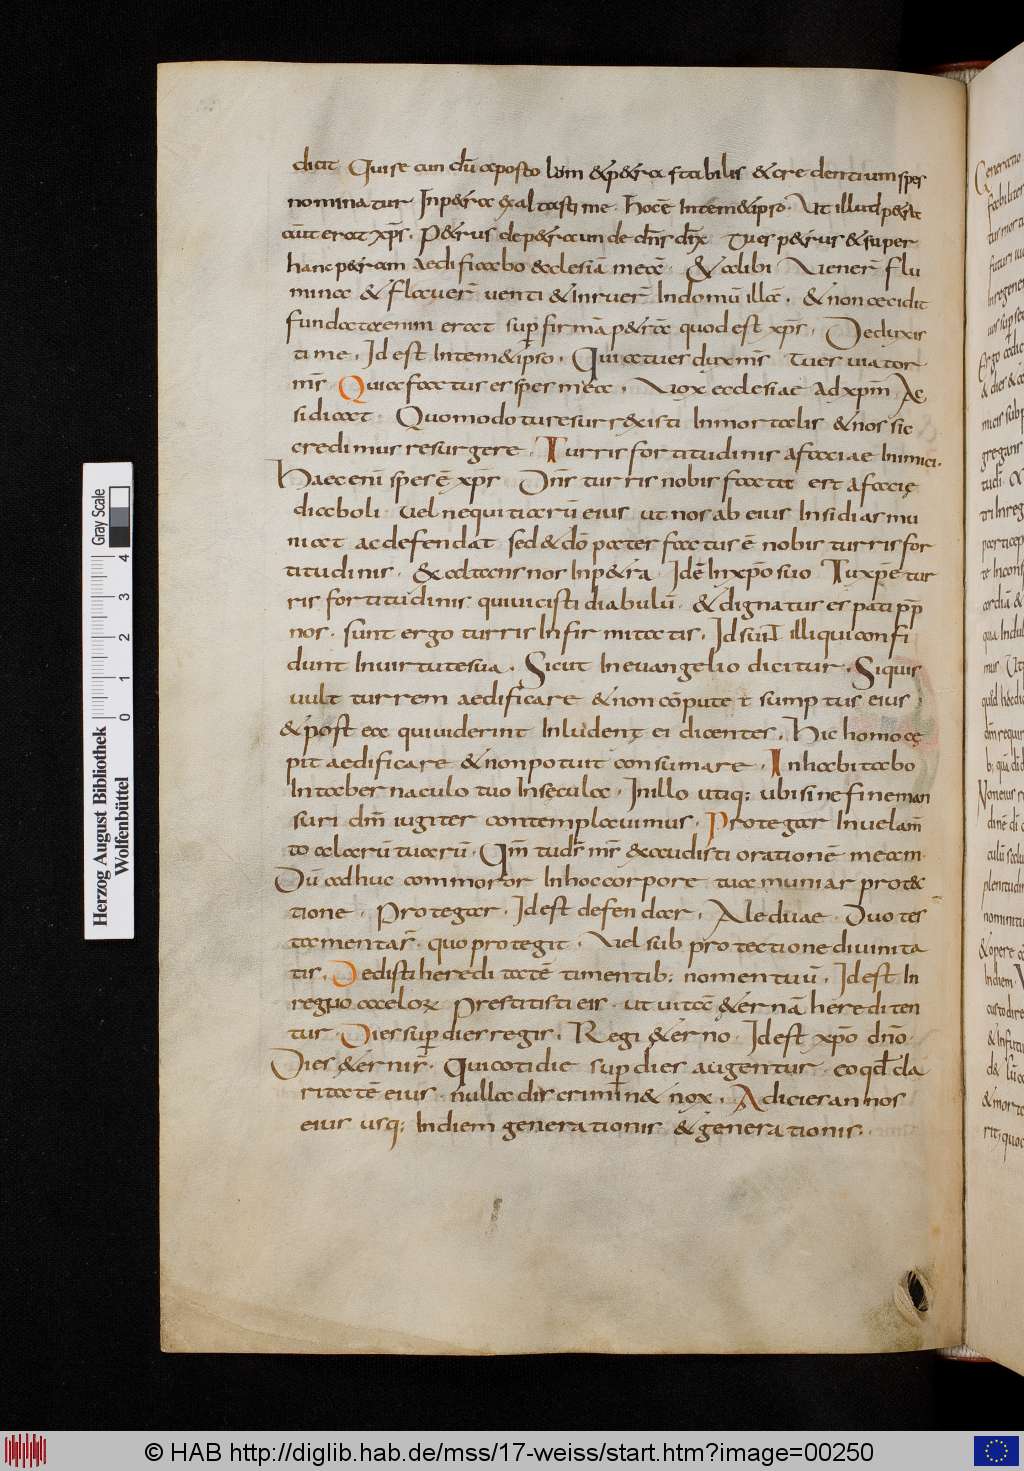 dicit Qui se cun dū aposto lorum & p&ra stabilis & cre dentium spes
nominatur In p&ra exal tasti me. hoc ē In tem&ipso. Ut illud p&ra
aūt erat xp̄s. P&rus de p&ra un de dn̄s dix̄ Tu es p&rus & super
hanc p&ram aedificabo ecclesiā meā. & alibi Uener̄ flu
mina & flauer̄ uenti & inruer̄ In domū illā. & non cecidit
fundata enim erat sup̄ firmā p&rā quod est xp̄s. Deduxis
ti me. Id est In tem&ipso. Quia tu es dux m̄s Tu es uiator
m̄s. Quia factus es spes mea. Uox ecclesiae ad xp̄m Ac
si dicat. Quomodo tu resurrexisti Inmortalis & nos sic
credimus resurgere. Turris fortitudinis a faciae Inimici.
Haec enī spes ē xp̄s Dn̄s turris nobis factus est a facię
diaboli. Uel nequitiarū eius ut nos ab eius Insidiis mu
niat ac defendat sed & dō pater factus ē nobis turris for
titudinis. & adtans nos In p&ra. Idē In xp̄o suo Tu xp̄e tur
ris fortitudinis qui uicisti diabulū. & dignatus es pati pp̄
nos. sunt ergo turris Infirmitatis. Id sunt illi qui confi
dunt In uirtute sua. Sicut In euangelio dicitur. Si quis
uult turrem aedificare & non cōputet sumptus eius
& post ea qui uiderint Inludent ei dicentes. Hic homo cę
pit aedificare & non potuit consumare. Inhabitabo
In tabernaculo tuo In secula. In illo utiq; ubi sine fine man
suri dn̄m iugiter contemplauimus. Protegar In uelam̄
to alarū tuarū. Qm̄ tu ds̄ m̄s exaudisti orationē meam.
Dū adhuc commoror In hoc corpore tua muniar prot&
tione. Protegar. Id est defendar. Ale duae. Duo tes
tamentar̄. quo protegit. Uel sub protectione diuinita
tis. Dedisti heredi tatē timentib; nomen tuū. Id est In
regno caelorum Prestitisti eis. ut uitā &ernā heredi ten
tur. Dies sup̄ dies regis. Regi &erno. Id est xp̄o dn̄o.
Dies &ernis. Qui cotidie sup̄ dies augentur. eo qd̄ cla
ritatē eius. nulla discrimin& nox. Adicies annos
eius usq; In diem generationis & generationis.
Herzog August Bibliothek
Wolfenbüttel
0 1 2 3 4
Gray Scale
© HAB http://diglib.hab.de/mss/17-weiss/start.htm?image=00250